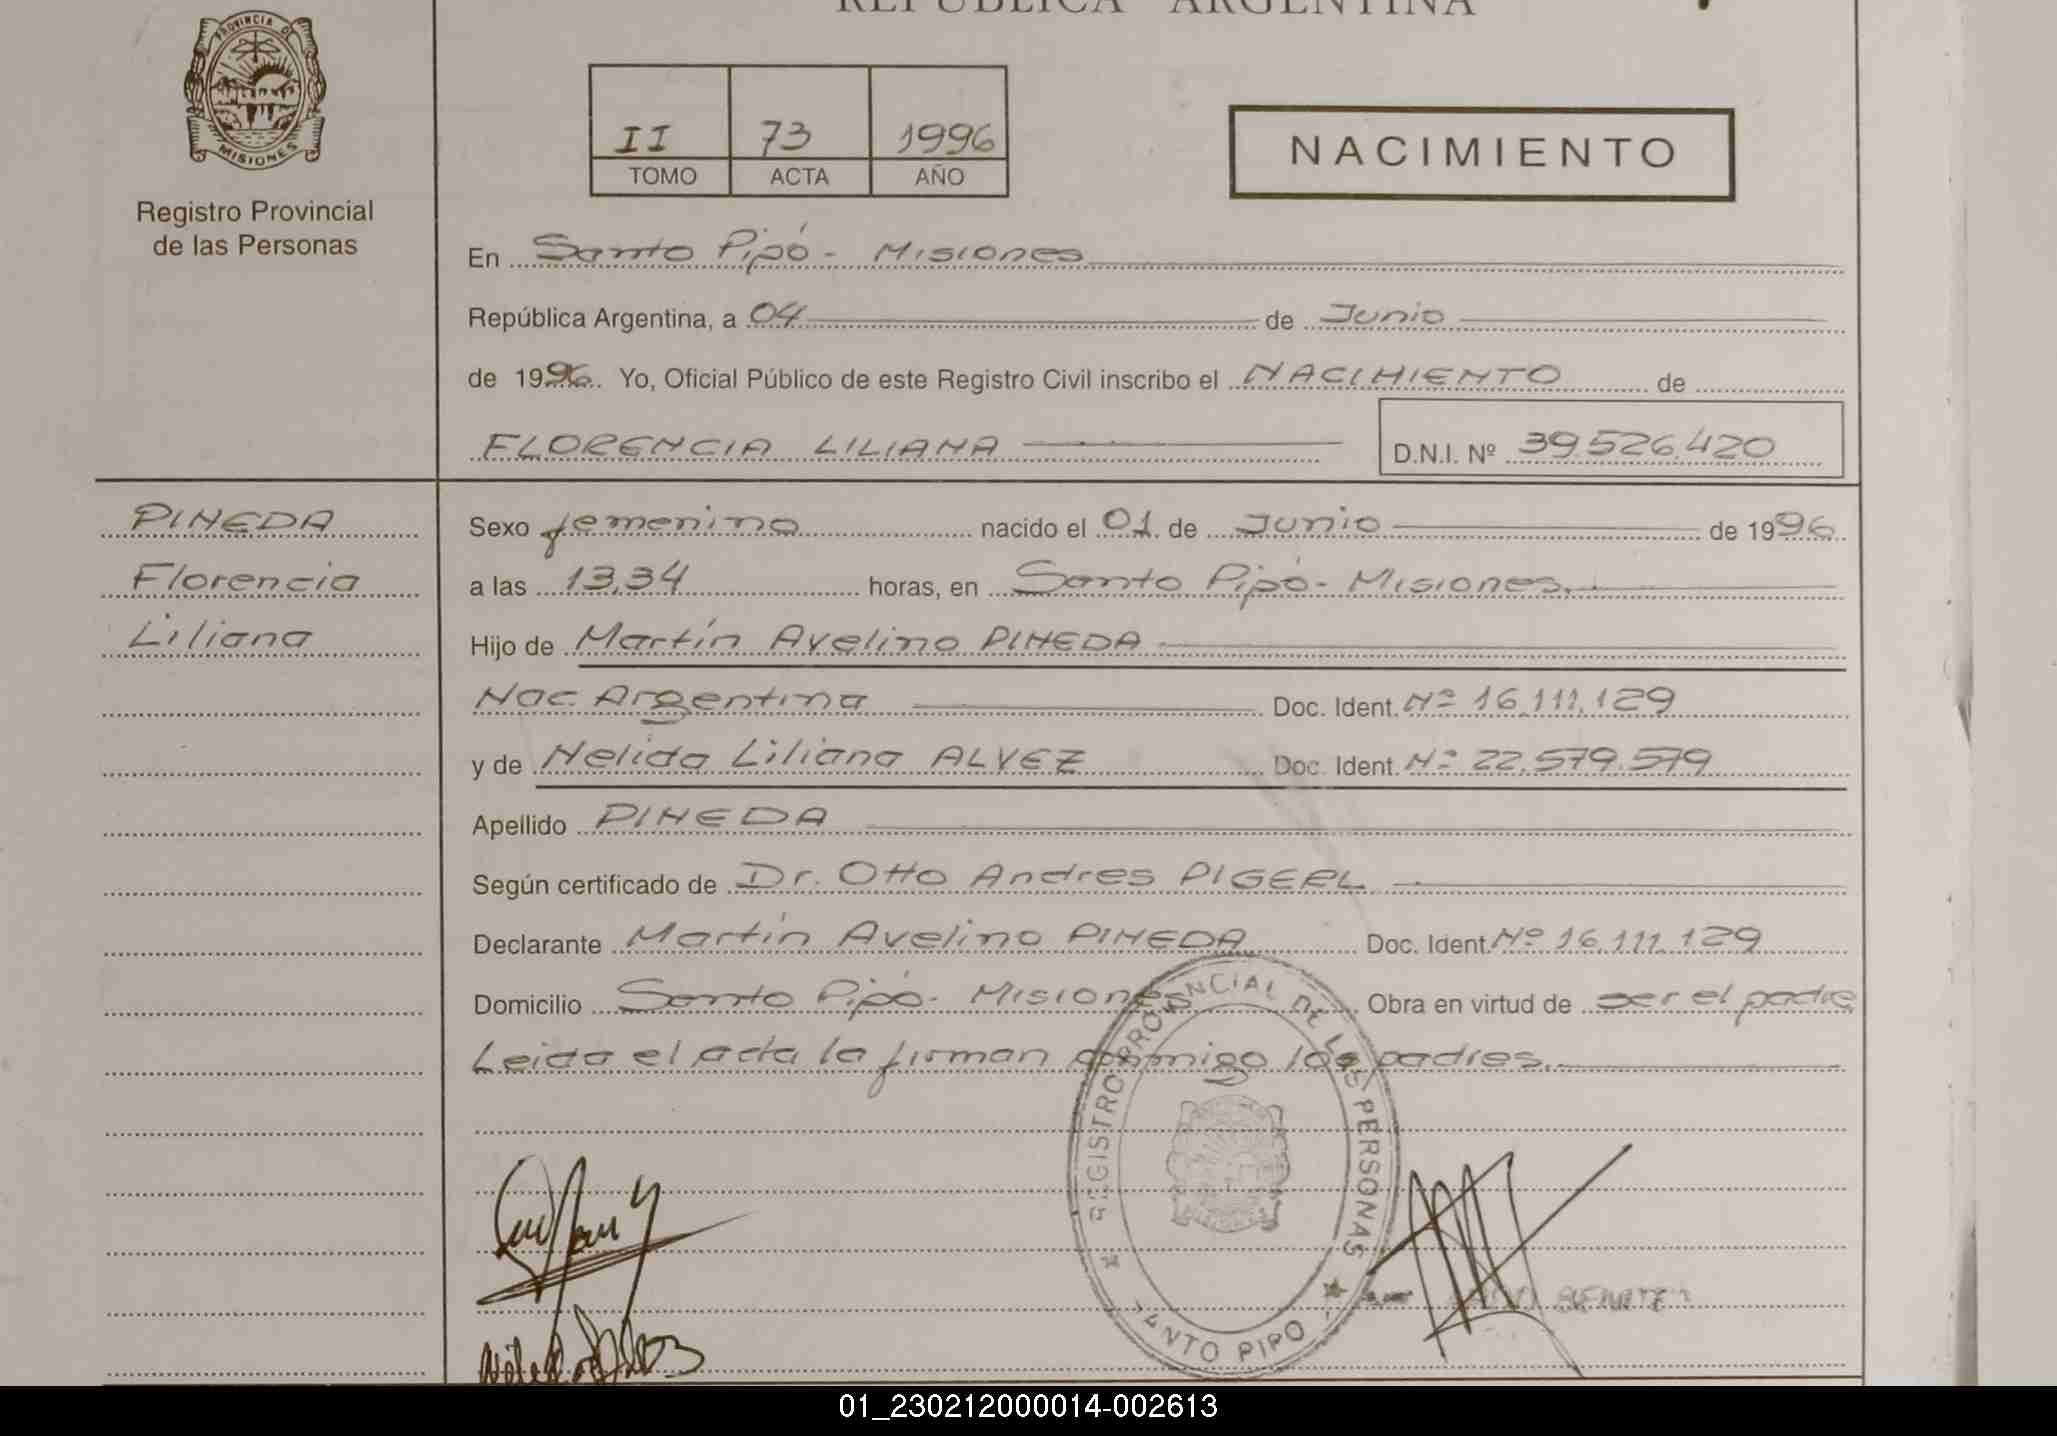 REPÚBLICA ARGENTINA
PROVINCIA DE
MISIONES
Registro Provincial
de las Personas
II 73 1996
TOMO ACTA AÑO
NACIMIENTO
En Santo Pipó - Misiones
República Argentina, a 04 de Junio
de 1996. Yo, Oficial Público de este Registro Civil inscribo el NACIMIENTO de
FLORENCIA LILIANA D.N.I. Nº 39.526.420
PINEDA
Florencia
Liliana
Sexo femenino nacido el 01 de Junio de 1996
a las 13,34 horas, en Santo Pipó - Misiones.
Hijo de Martín Avelino PINEDA
Nac. Argentina Doc. Ident. Nº 16.111.129
y de Nelida Liliana ALVEZ Doc. Ident. Nº 22.579.579
Apellido PINEDA
Según certificado de Dr. Otto Andres PIGERL
Declarante Martín Avelino PINEDA Doc. Ident. Nº 16.111.129
Domicilio Santo Pipó - Misiones Obra en virtud de ser el padre
Leida el acta la firman conmigo los padres.
REGISTRO PROVINCIAL DE LAS PERSONAS
SANTO PIPO
01_230212000014-002613